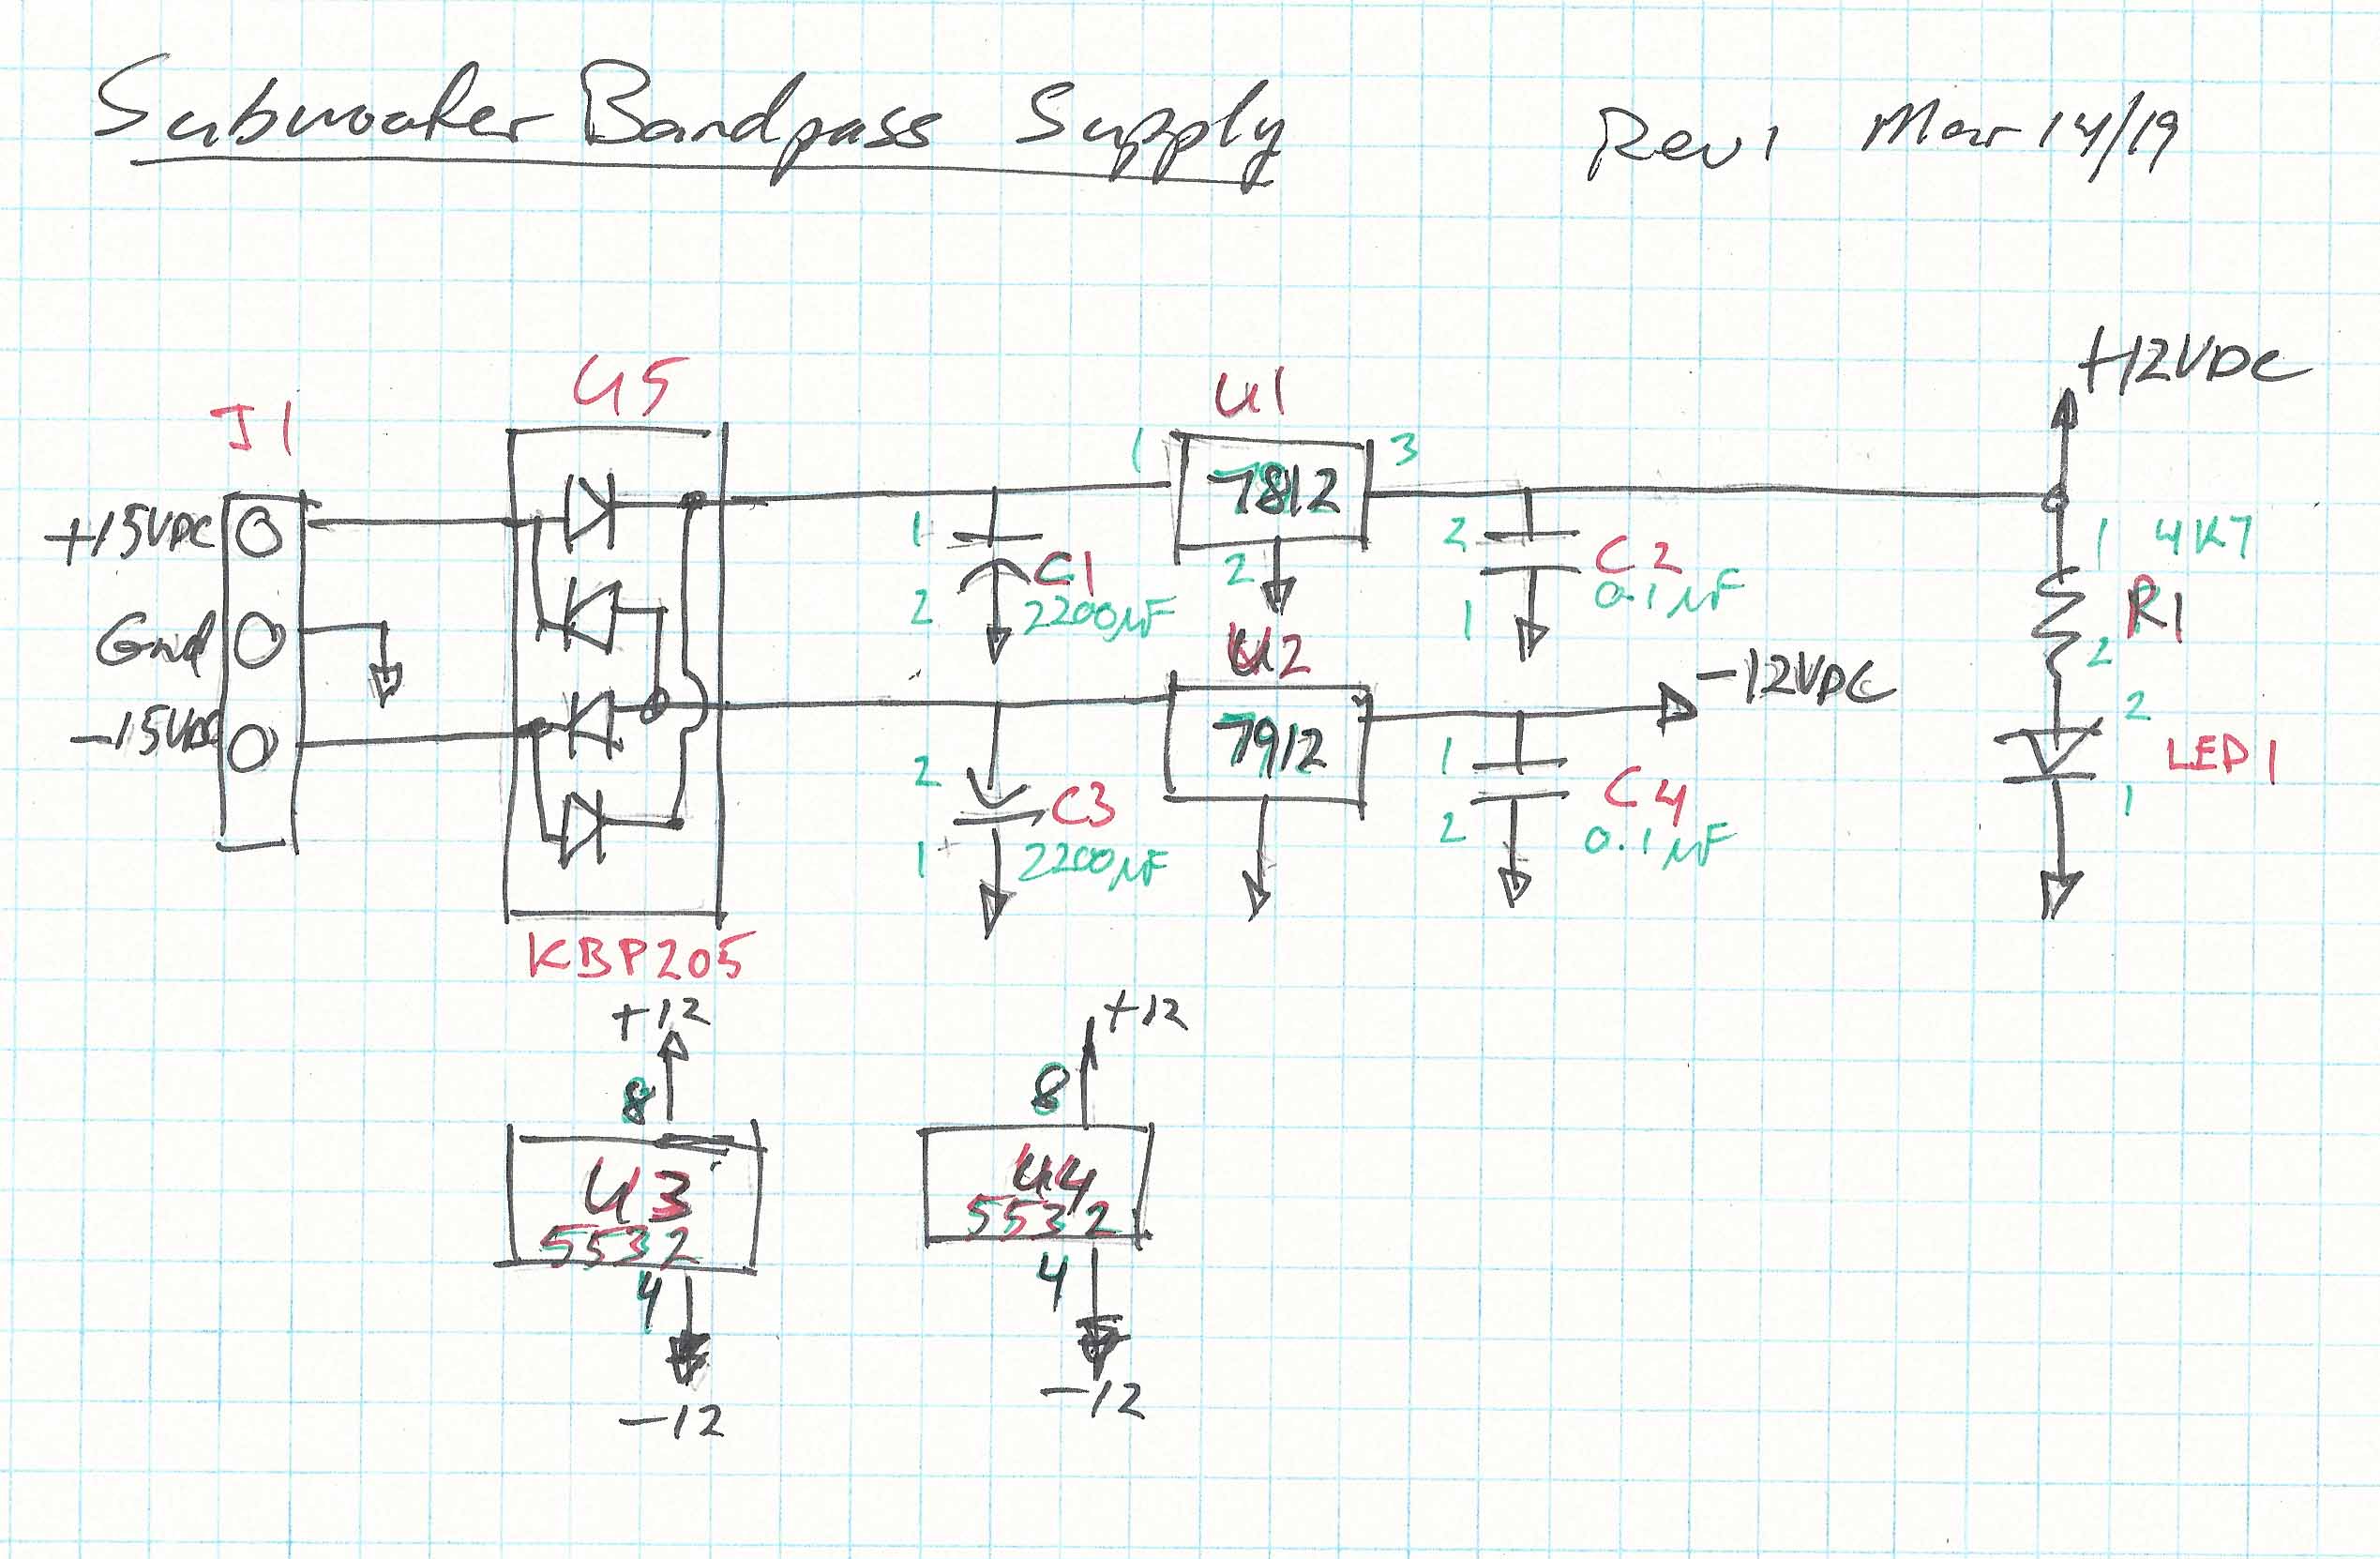 Subwoofer Bandpass Supply Rev1 Mar 14/19
+12VDC
U5 U1
J1
1 3
7812
+15VDC
1 2 1 4K7
C1 2 C2
2 2200µF 0.1µF R1
Gnd U2 1 2
-12VDC
-15VDC 2 7912 1 2
C3 C4 LED1
1 2200µF 2 0.1µF 1
KBP205
+12 +12
8 8
U3 U4
5532 5532
4 4
-12 -12